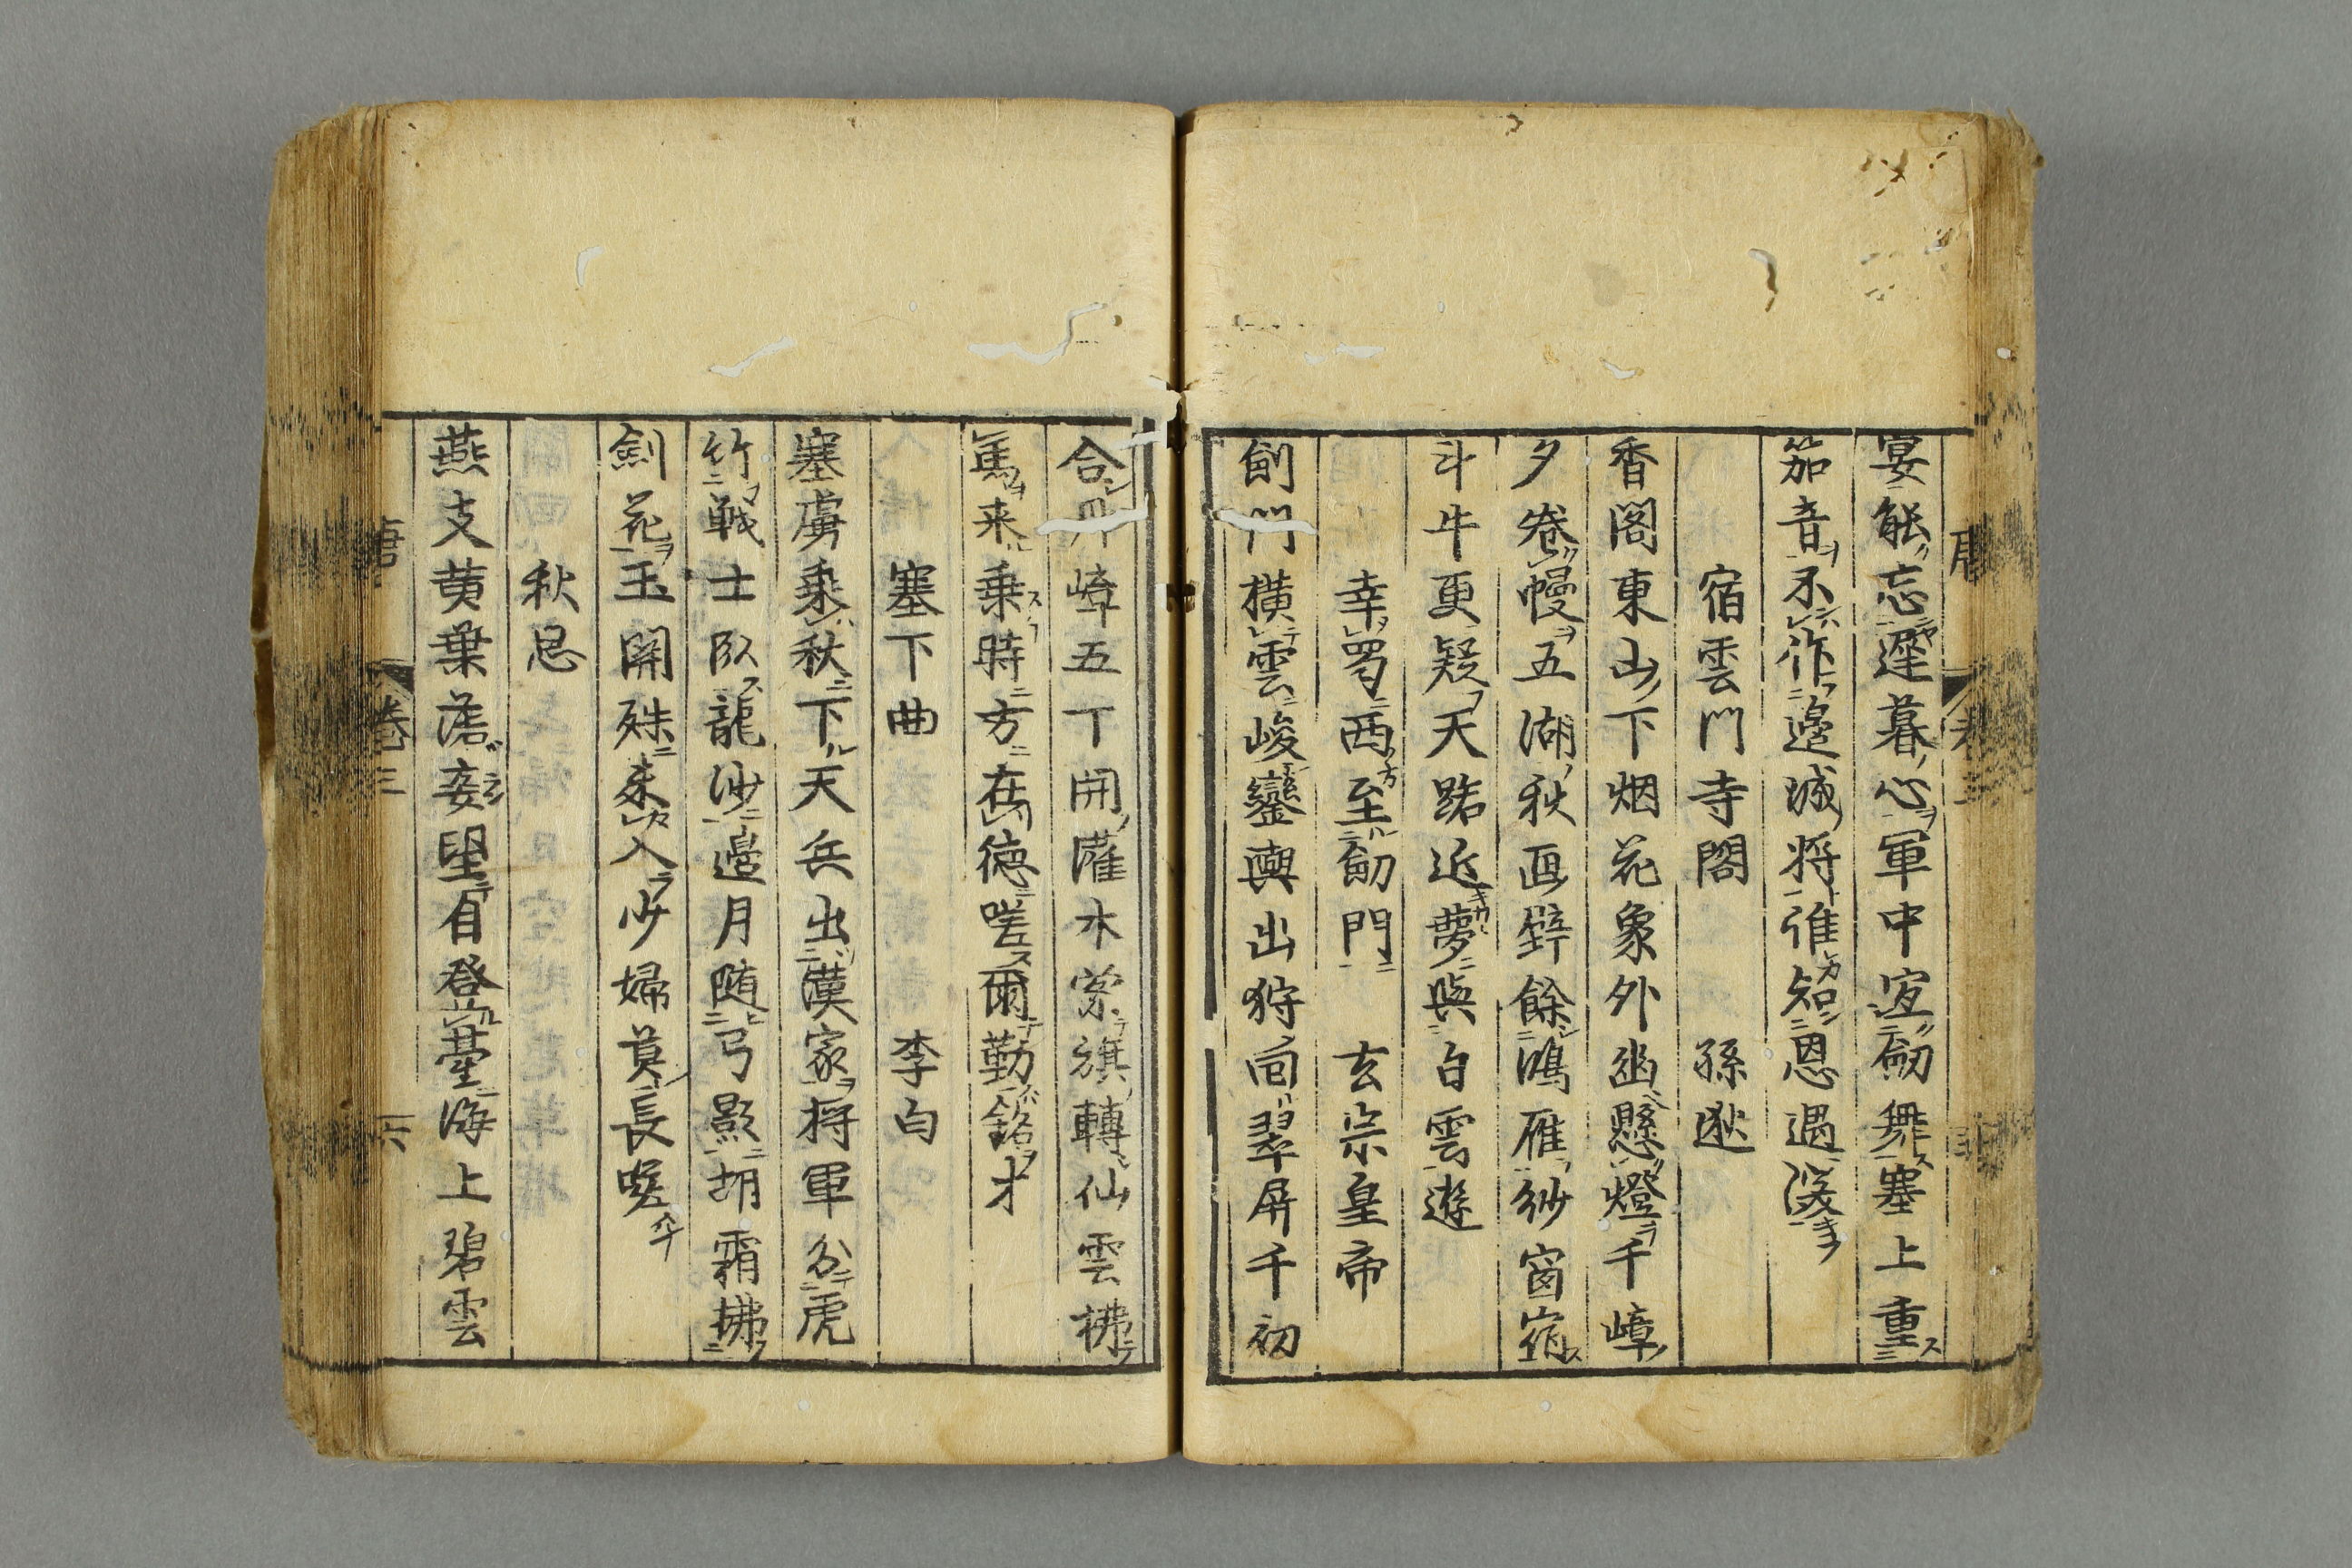 宴能忘遲暮心軍中宜劒舞塞上重
笳音不作邊城将誰知恩遇深
宿雲門寺閣 孫逖
香閣東山下烟花象外幽懸燈千嶂
夕巻幔五湖秋画壁餘鴻雁紗窗宿
斗牛更疑天路近夢與白雲遊
幸蜀西至劒門 玄宗皇帝
劒門横雲峻鑾輿出狩回翠屏千初
合丹嶂五丁開灌木縈旗轉仙雲拂
馬来乗時方在徳嗟爾勤銘才
塞下曲 李白
塞虜乗秋下天兵出漢家将軍分虎
竹戦士臥龍沙邉月随弓影胡霜拂
劍花玉関殊未入少婦莫長嗟
秋思
燕支黄葉落妾望自登臺海上碧雲
唐 巻三 六